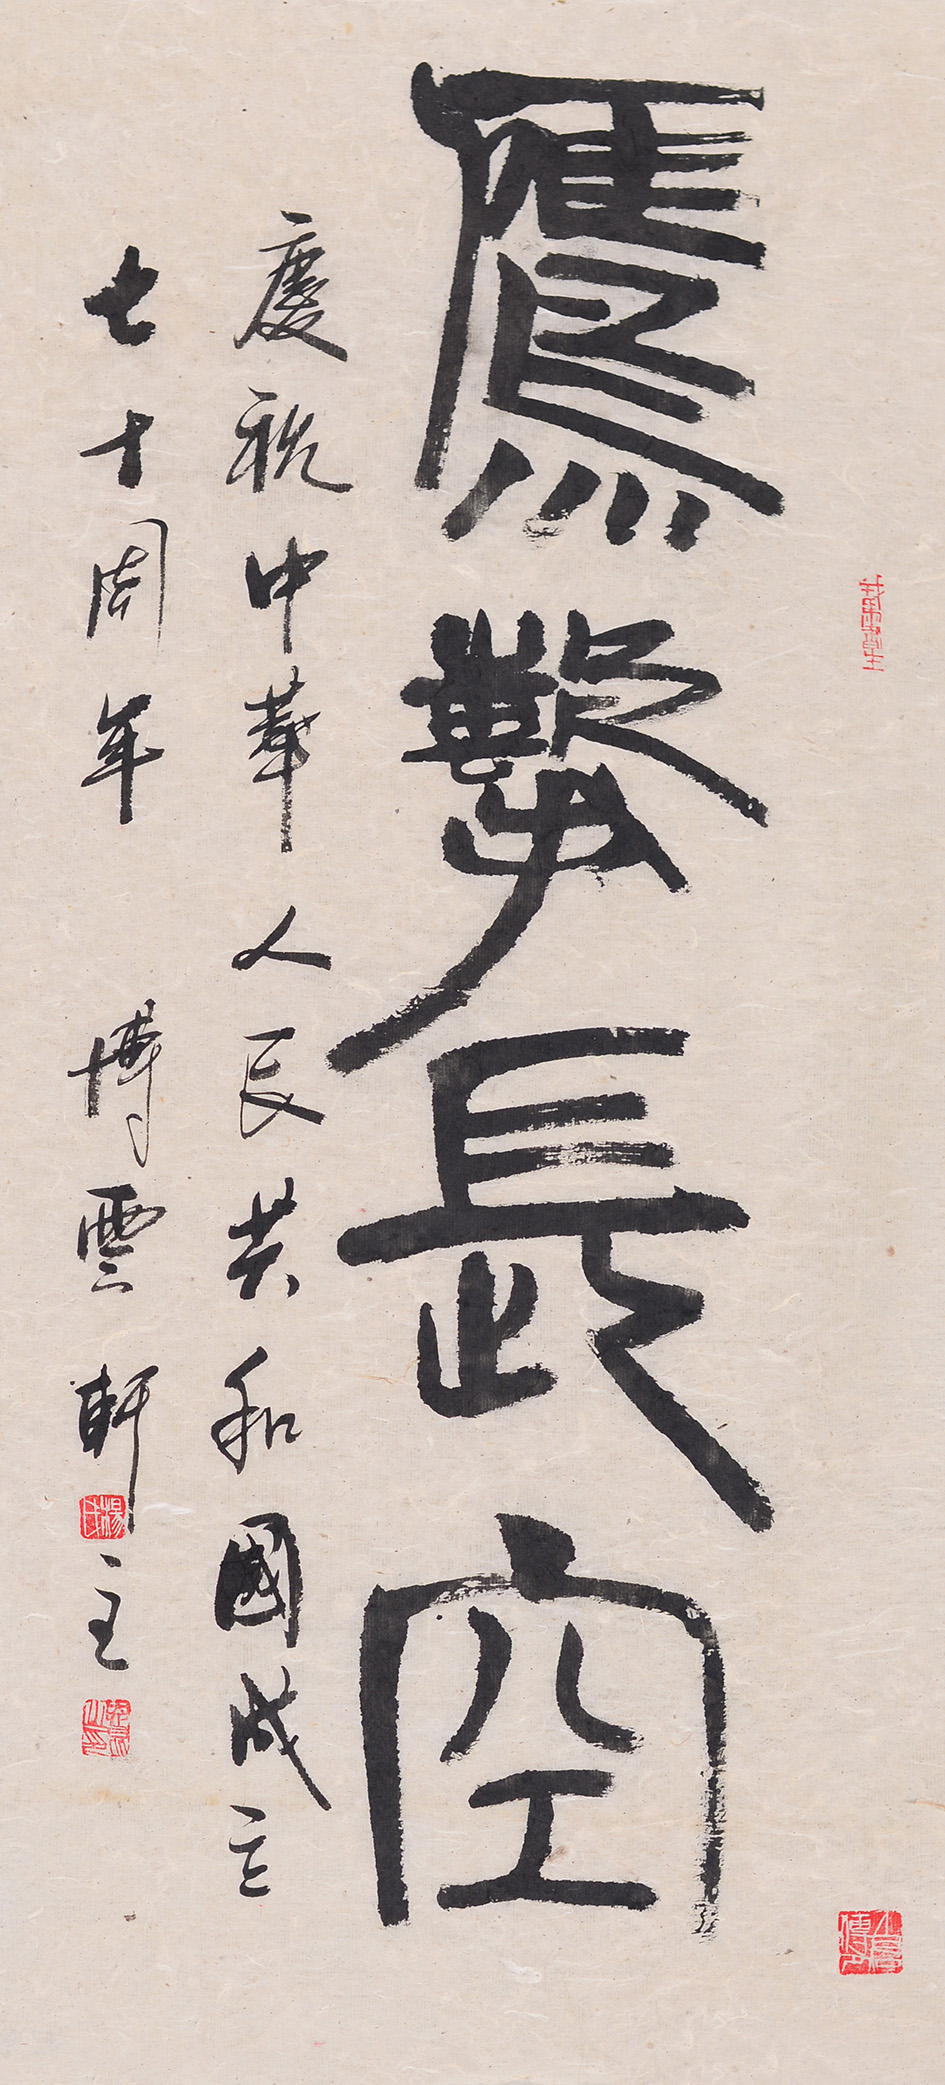 鷹擊長空
慶祝中華人民共和國成立
七十周年 博雲軒主
楊氏